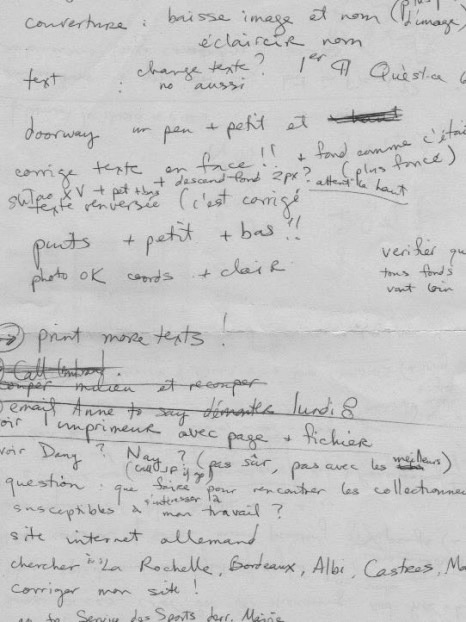 couverture : baisse image et nom (plus d'image)
éclaircir nom
text : change texte ? 1er ¶ Questia
no aussi
doorway un peu + petit et
+ fond comme c'était
corrige texte en face !! (plus foncé)
+ descend fond 2px ? attent. la haut
XV + pet + bas
texte renversée (c'est corrigé
pants + petit + bas !!
verifier que
photo OK coords + clair
tous fonds
vont loin
print more texts !
Call
couper milieu et recouper
email Anne to say démonter lundi 8
voir imprimeur avec page + fichier
voir Dany ? Nay ? (pas sûr, pas avec les meilleurs)
(call JP
question : que faire pour rencontrer les collectionne
s'intéresser à
susceptibles à mon travail ?
site internet allemand
chercher à La Rochelle, Bordeaux, Albi, Castres, Mo
corriger mon site !
Service des Sports derr. Mairie